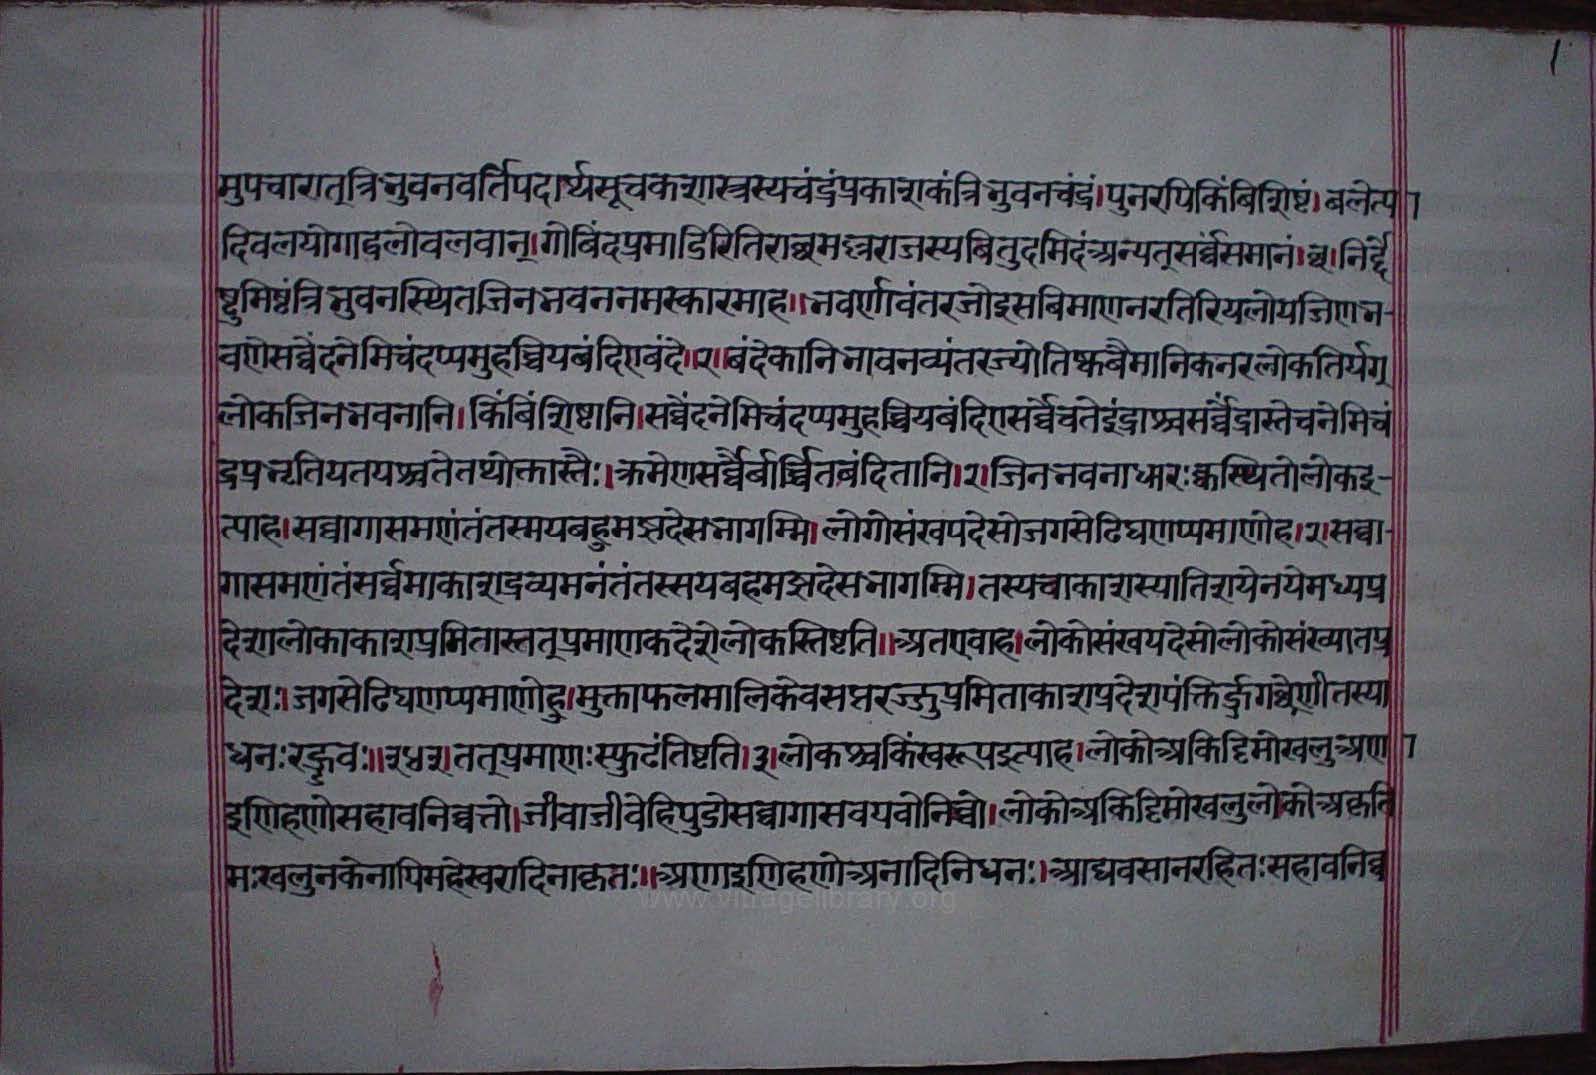 १
मुपचारात्त्रिभुवनवर्तिपदार्थसूचकशास्त्रस्यचंद्रंप्रकाशकंत्रिभुवनचंद्रं।पुनरपिकिंबिशिष्टं।बलेत्या
दिवलयोगाद्वलोवलवान्।गोबिंदप्रमाडिरितिराच्चमल्लराजस्यबितुदमिदंअन्यत्सर्व्वसमानं।छ।निर्द्दे
ष्टुमिष्टंत्रिभुवनस्थितजिनभवननमस्कारमाह॥भवर्णावंतरजोइसबिमाणनरतिरियलोयजिणभ-
वणेसव्वेंदनेमिचंदप्पमुहच्चियबंदिएबंदे॥२॥बंदेकानिभावनव्यंतरज्योतिष्कबैमानिकनरलोकतिर्यग्
लोकजिनभवनानि।किंबिंशिष्टानि।सव्वेंदनेमिचंदप्पमुहच्चियबंदिएसर्व्वेचतेइंद्राश्चसर्व्वेंद्रास्तेचनेमिचं
द्रप्रभृतियतयश्चतेतथोक्तास्तैः।क्रमेणसर्व्वैर्बार्च्चितबंदितानि।२।जिनभवनाधारःक्वस्थितोलोकइ-
त्याह।सव्वागासमणंतंतस्मयबहुमज्झदेसभागम्मि।लोगोसंखपदेसोजगसेढिघणप्पमाणोह।२।सव्वा-
गासमणंतंसर्व्वमाकाशद्रव्यमनंतंतस्सयबहमज्झदेसभागम्मि।तस्यचाकाशस्यातिशयेनयेमध्यप्र
देशालोकाकाशप्रमितास्तत्प्रमाणकदेशेलोकस्तिष्टति॥अतएवाह।लोकोसंखयदेसोलोकोसंख्यातप्र
देशः।जगसेढिघणप्पमाणोहु।मुक्ताफलमालिकेवसप्तरज्जुप्रमिताकाशप्रदेशपंक्तिर्ज्जगश्रेणीतस्या
धनः॥तत्प्रमाणःस्फुटंतिष्टति।३।लोकश्चकिंस्वरूपइत्याह।लोकोअकिट्टिमोखलुअणा
इणिहणोसहावनिव्वत्तो।जीवाजीवेहिफुडोसव्वागासवयवोनिच्चो।लोकोअकिट्टिमोखलुलोकोअकृत्रि
मःखलुनकेनापिमहेस्वरादिनाकृतः॥अणाइणिहणोअनादिनिधनः।आद्यवसानरहितःसहावनिव्व
www.vitragelibrary.org